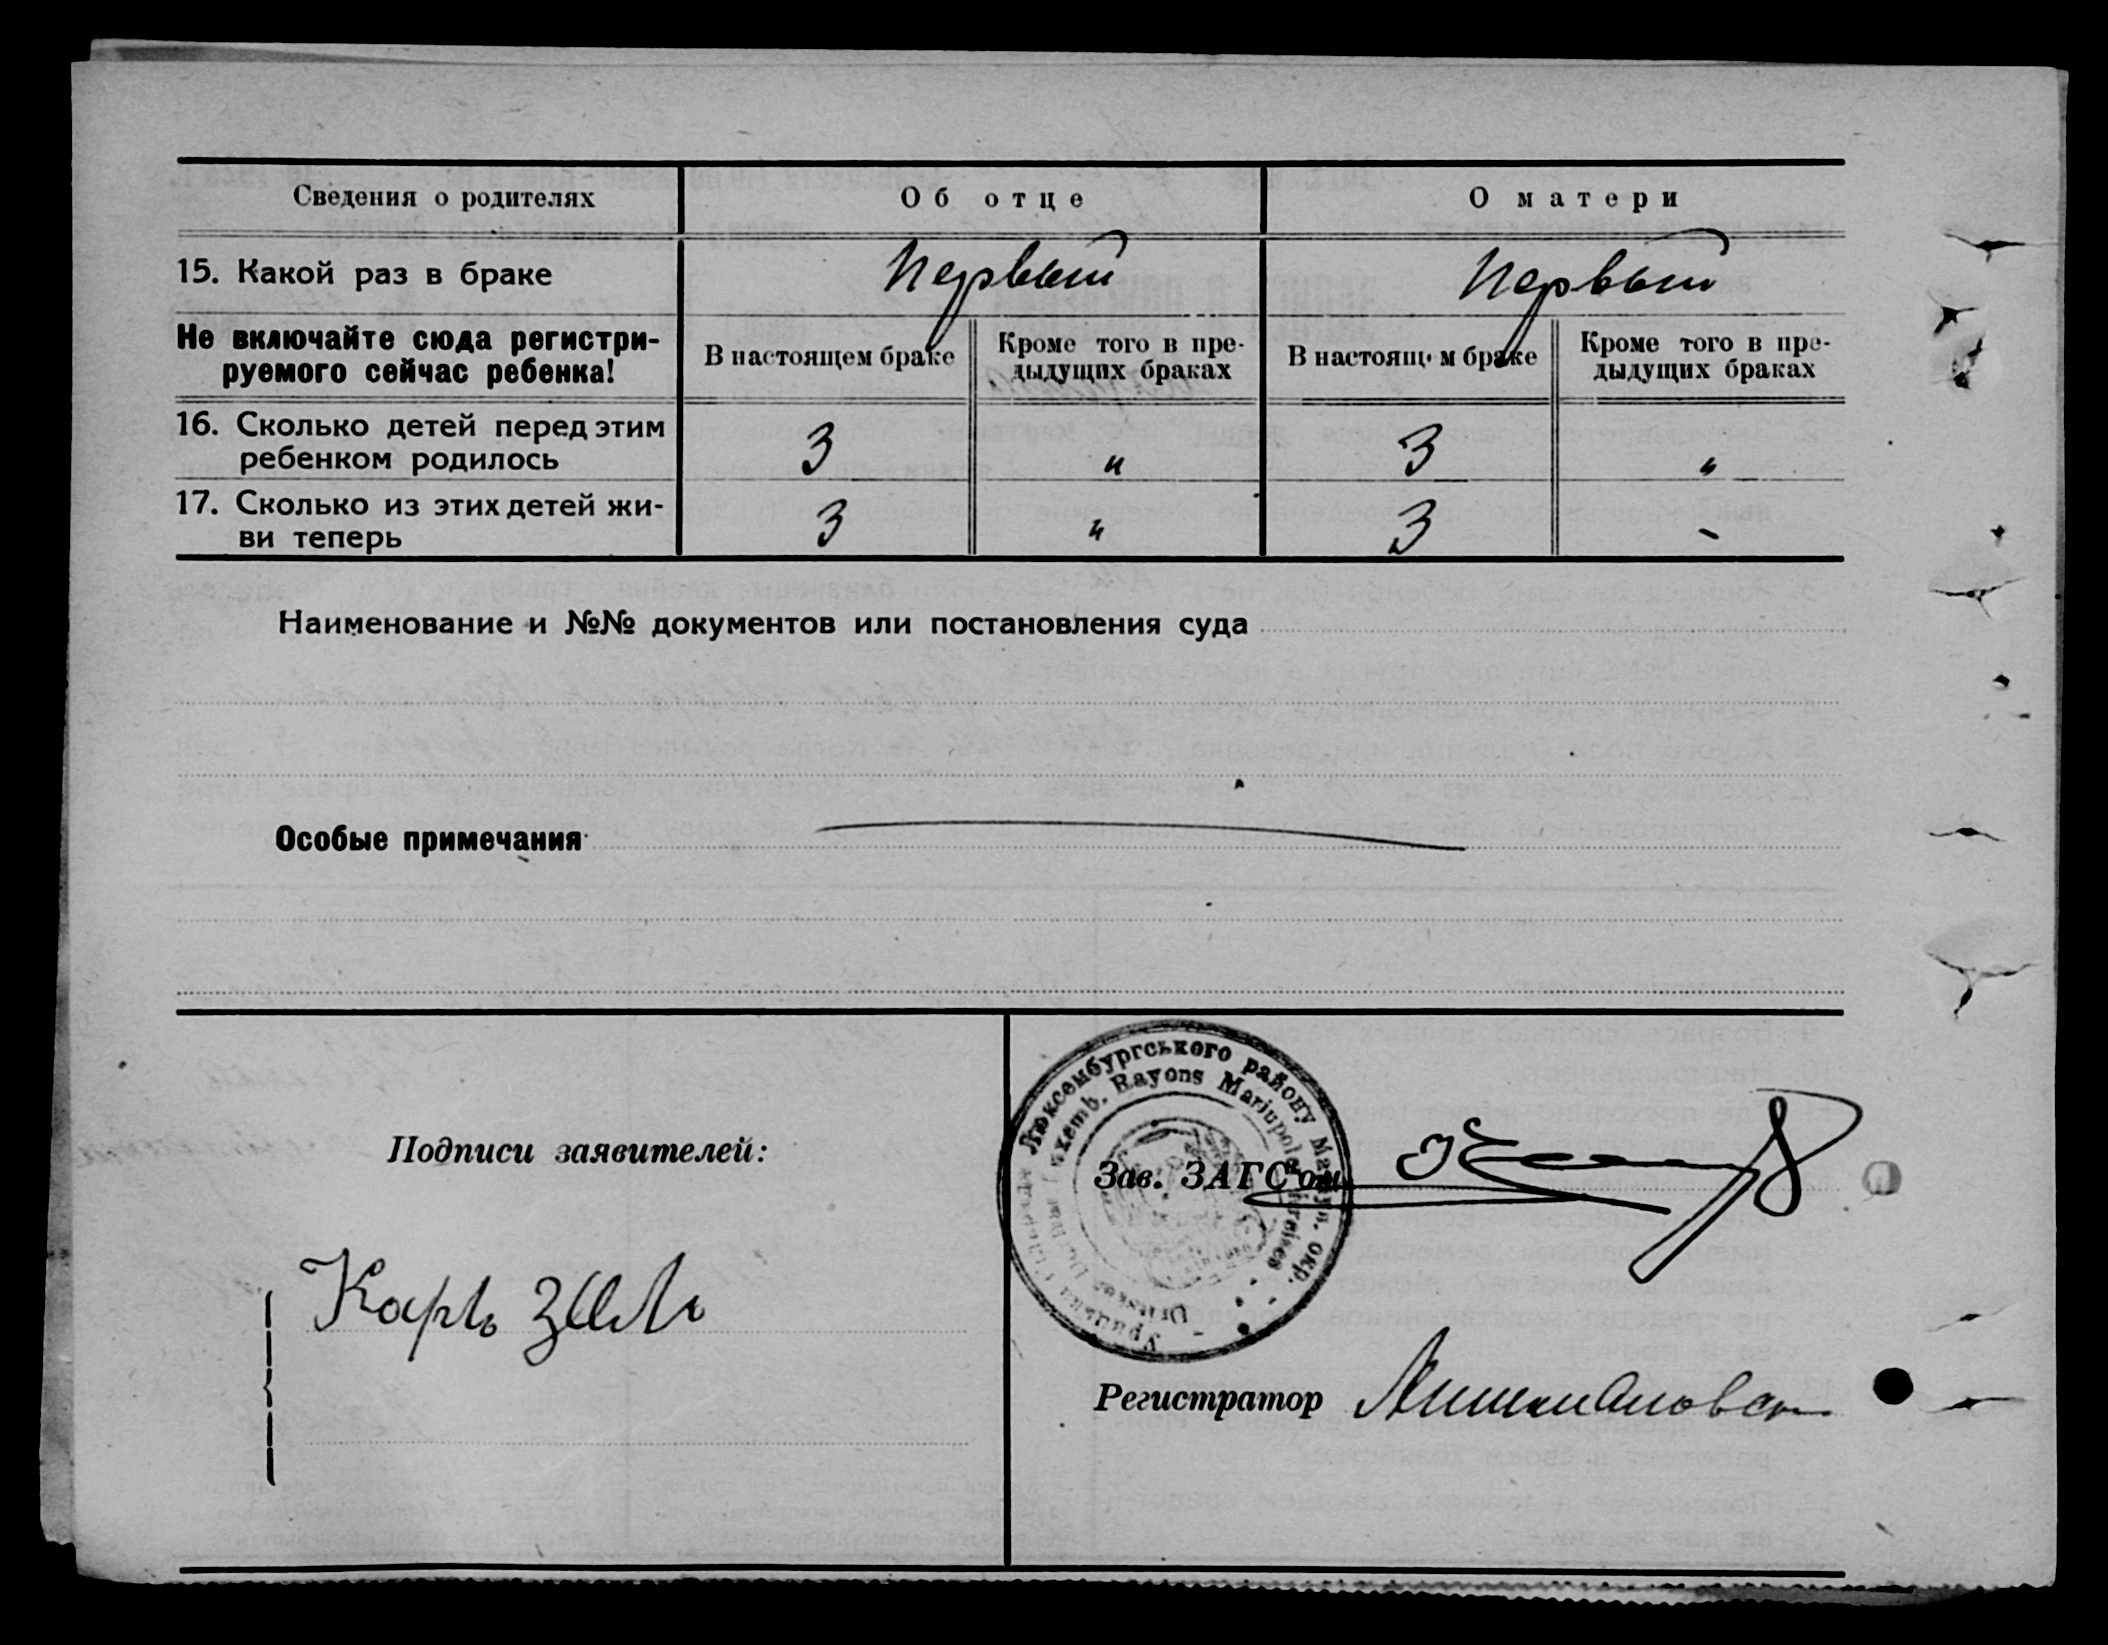 Сведения о родителях
Об отце
О матери
15. Какой раз в браке
Первый
Первый
Не включайте сюда регистри-
руемого сейчас ребенка!
В настоящем браке
Кроме того в пре-
дыдущих браках
В настоящем браке
Кроме того в пре-
дыдущих браках
16. Сколько детей перед этим
ребенком родилось
3
"
3
"
17. Сколько из этих детей жи-
ви теперь
3
"
3
-
Наименование и №№ документов или постановления суда
Особые примечания
Подписи заявителей:
Карль Заль
Люксембургського району Маріуп. окр.
Luxemb. Rayons Mariupoler Kreises
Зав. ЗАГС'ом
Регистратор